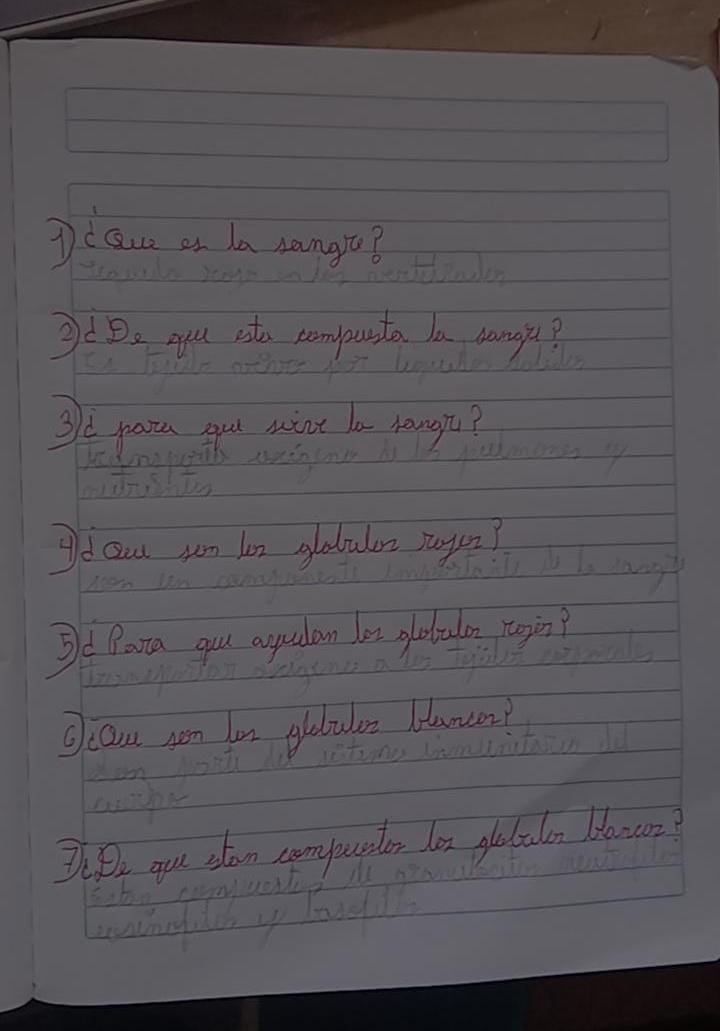 1) ¿Que es la sangre?
rojo en los vertebrados
2) ¿De que esta compuesta la sangre?
Es tejido por
3) ¿para que sirve la sangre?
transporta oxigeno de los pulmones y
nutrientes
4) ¿Que son los globulos rojos?
son un componente importante de la sangre
5) ¿Para que ayudan los globulos rojos?
transportar oxigeno a los tejidos corporales
6) ¿Que son los globulos blancos?
son parte del sistema inmunitario del
cuerpo
7) ¿De que estan compuestos los globulos blancos?
Estan compuestos de granulocitos neutrofilos
eosinofilos y basofilos